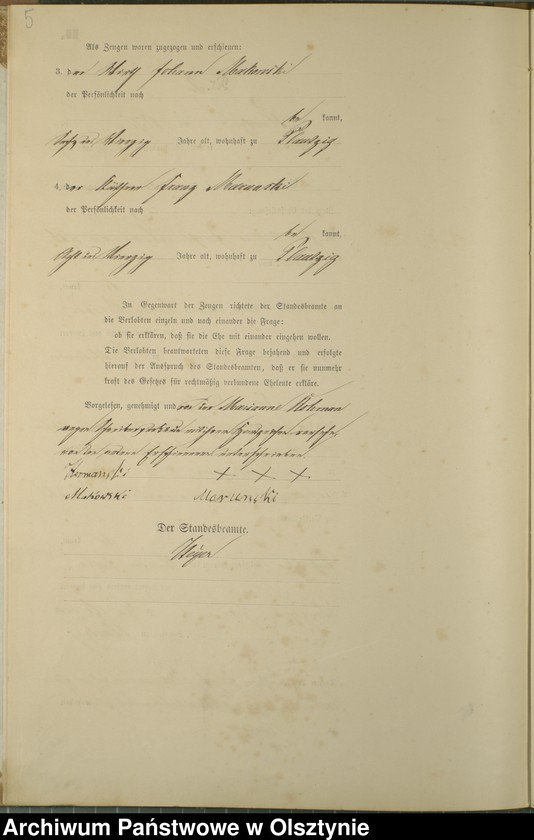 5
Als Zeugen waren zugezogen und erschienen:
3. der Wirth Johann Makowski
der Persönlichkeit nach
be kannt,
Jahre alt, wohnhaft zu Plautzig
4. der Käthner Franz Marenski
der Persönlichkeit nach
be kannt,
Jahre alt, wohnhaft zu Plautzig
In Gegenwart der Zeugen richtete der Standesbeamte an
die Verlobten einzeln und nach einander die Frage:
ob sie erklären, daß sie die Ehe mit einander eingehen wollen.
Die Verlobten beantworteten diese Frage bejahend und erfolgte
hierauf der Ausspruch des Standesbeamten, daß er sie nunmehr
kraft des Gesetzes für rechtmäßig verbundene Eheleute erkläre.
Vorgelesen, genehmigt und von der Marianne
wegen Schreibensunkunde mit ihrem Handzeichen versehen,
von den andern Erschienenen unterschrieben
+ + +
Makowski Marenski
Der Standesbeamte.
Archiwum Państwowe w Olsztynie